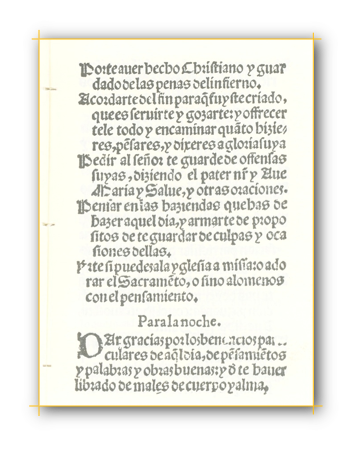 Porte auer hecho Christiano y guar
dado de las penas del infierno.
Acordarte del fin para q̃ fuyste criado,
que es seruirte y gozarte: y offrecer
tele todo y encaminar quãto hizie-
res, pẽsares, y dixeres a gloria suya
Pedir al señor te guarde de offensas
suyas, diziendo el pater nr̃ y Aue
Maria y Salue, y otras oraciones.
Pensar en las haziendas que has de
hazer aquel dia, y armarte de propo
sitos de te guardar de culpas y oca
siones dellas.
Yrte si puedes a la yglesia a missa: o ado
rar el Sacramẽto, o sino alomenos
con el pensamiento.
Para la noche.
DAr gracias por los beneficios par
culares de aq̃l dia, de pẽsamiẽtos
y palabras y obras buenas: y d̃ te hauer
librado de males de cuerpo y alma,